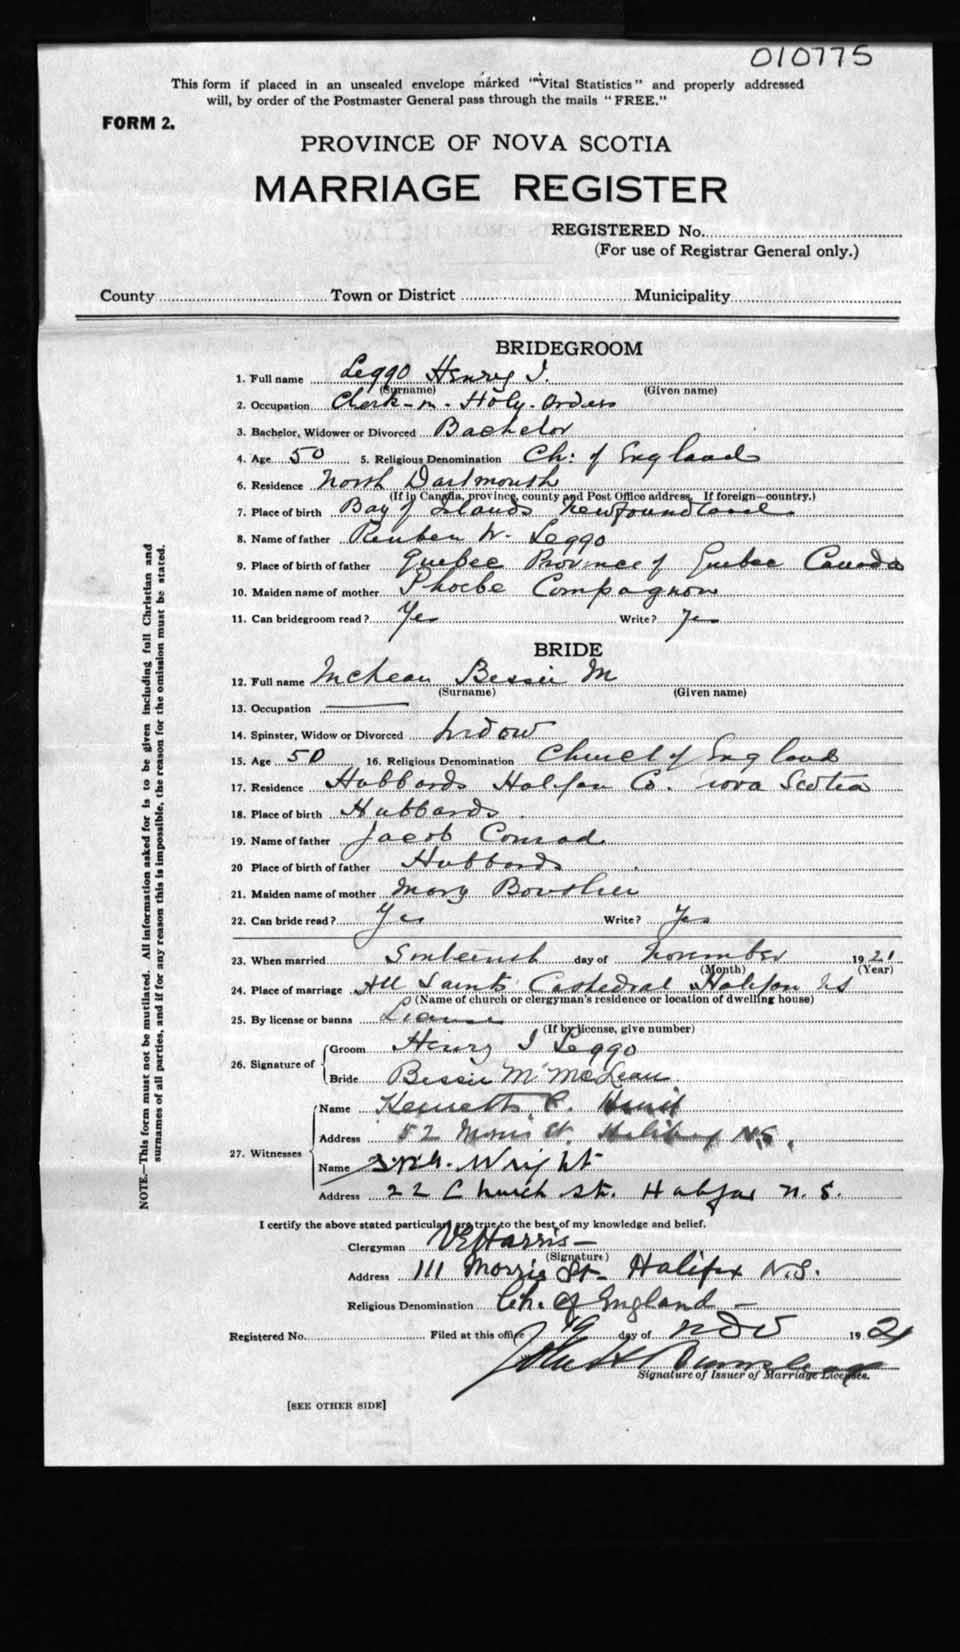 010775
This form if placed in an unsealed envelope marked "Vital Statistics" and properly addressed
will, by order of the Postmaster General pass through the mails "FREE."
FORM 2.
PROVINCE OF NOVA SCOTIA
MARRIAGE REGISTER
REGISTERED No.
(For use of Registrar General only.)
County Town or District Municipality
BRIDEGROOM
1. Full name Leggo Henry J.
(Surname) (Given name)
2. Occupation Clerk-in-Holy-Orders
3. Bachelor, Widower or Divorced Bachelor
4. Age 50 5. Religious Denomination Ch: of England
6. Residence North Dartmouth
(If in Canada, province, county and Post Office address. If foreign—country.)
7. Place of birth Bay of Islands Newfoundland
8. Name of father Reuben W. Leggo
9. Place of birth of father Quebec Province of Quebec Canada
10. Maiden name of mother Phoebe Compagnon
11. Can bridegroom read? Yes Write? Yes
BRIDE
12. Full name McLean Bessie M
(Surname) (Given name)
13. Occupation
14. Spinster, Widow or Divorced Widow
15. Age 50 16. Religious Denomination Church of England
17. Residence Hubbards Halifax Co. Nova Scotia
18. Place of birth Hubbards
19. Name of father Jacob Conrad
20 Place of birth of father Hubbards
21. Maiden name of mother Mary
22. Can bride read? Yes Write? Yes
23. When married day of November 1921
(Month) (Year)
24. Place of marriage All Saints Cathedral Halifax NS
(Name of church or clergyman's residence or location of dwelling house)
25. By license or banns License
(If by license, give number)
26. Signature of Groom Henry J Leggo
Bride Bessie M McLean
27. Witnesses
Name Kenneth C.
Address 52 Morris St. Halifax N.S.
Name Wright
Address 22 Church St. Halifax N.S.
I certify the above stated particulars are true to the best of my knowledge and belief.
Clergyman VEHarris—
(Signature)
Address 111 Morris St— Halifax N.S.
Religious Denomination Ch. of England—
Registered No. Filed at this office 19 day of Nov 1921
John H
Signature of Issuer of Marriage Licenses.
[SEE OTHER SIDE]
NOTE.—This form must not be mutilated. All information asked for is to be given including full Christian and
surnames of all parties, and if for any reason this is impossible, the reason for the omission must be stated.